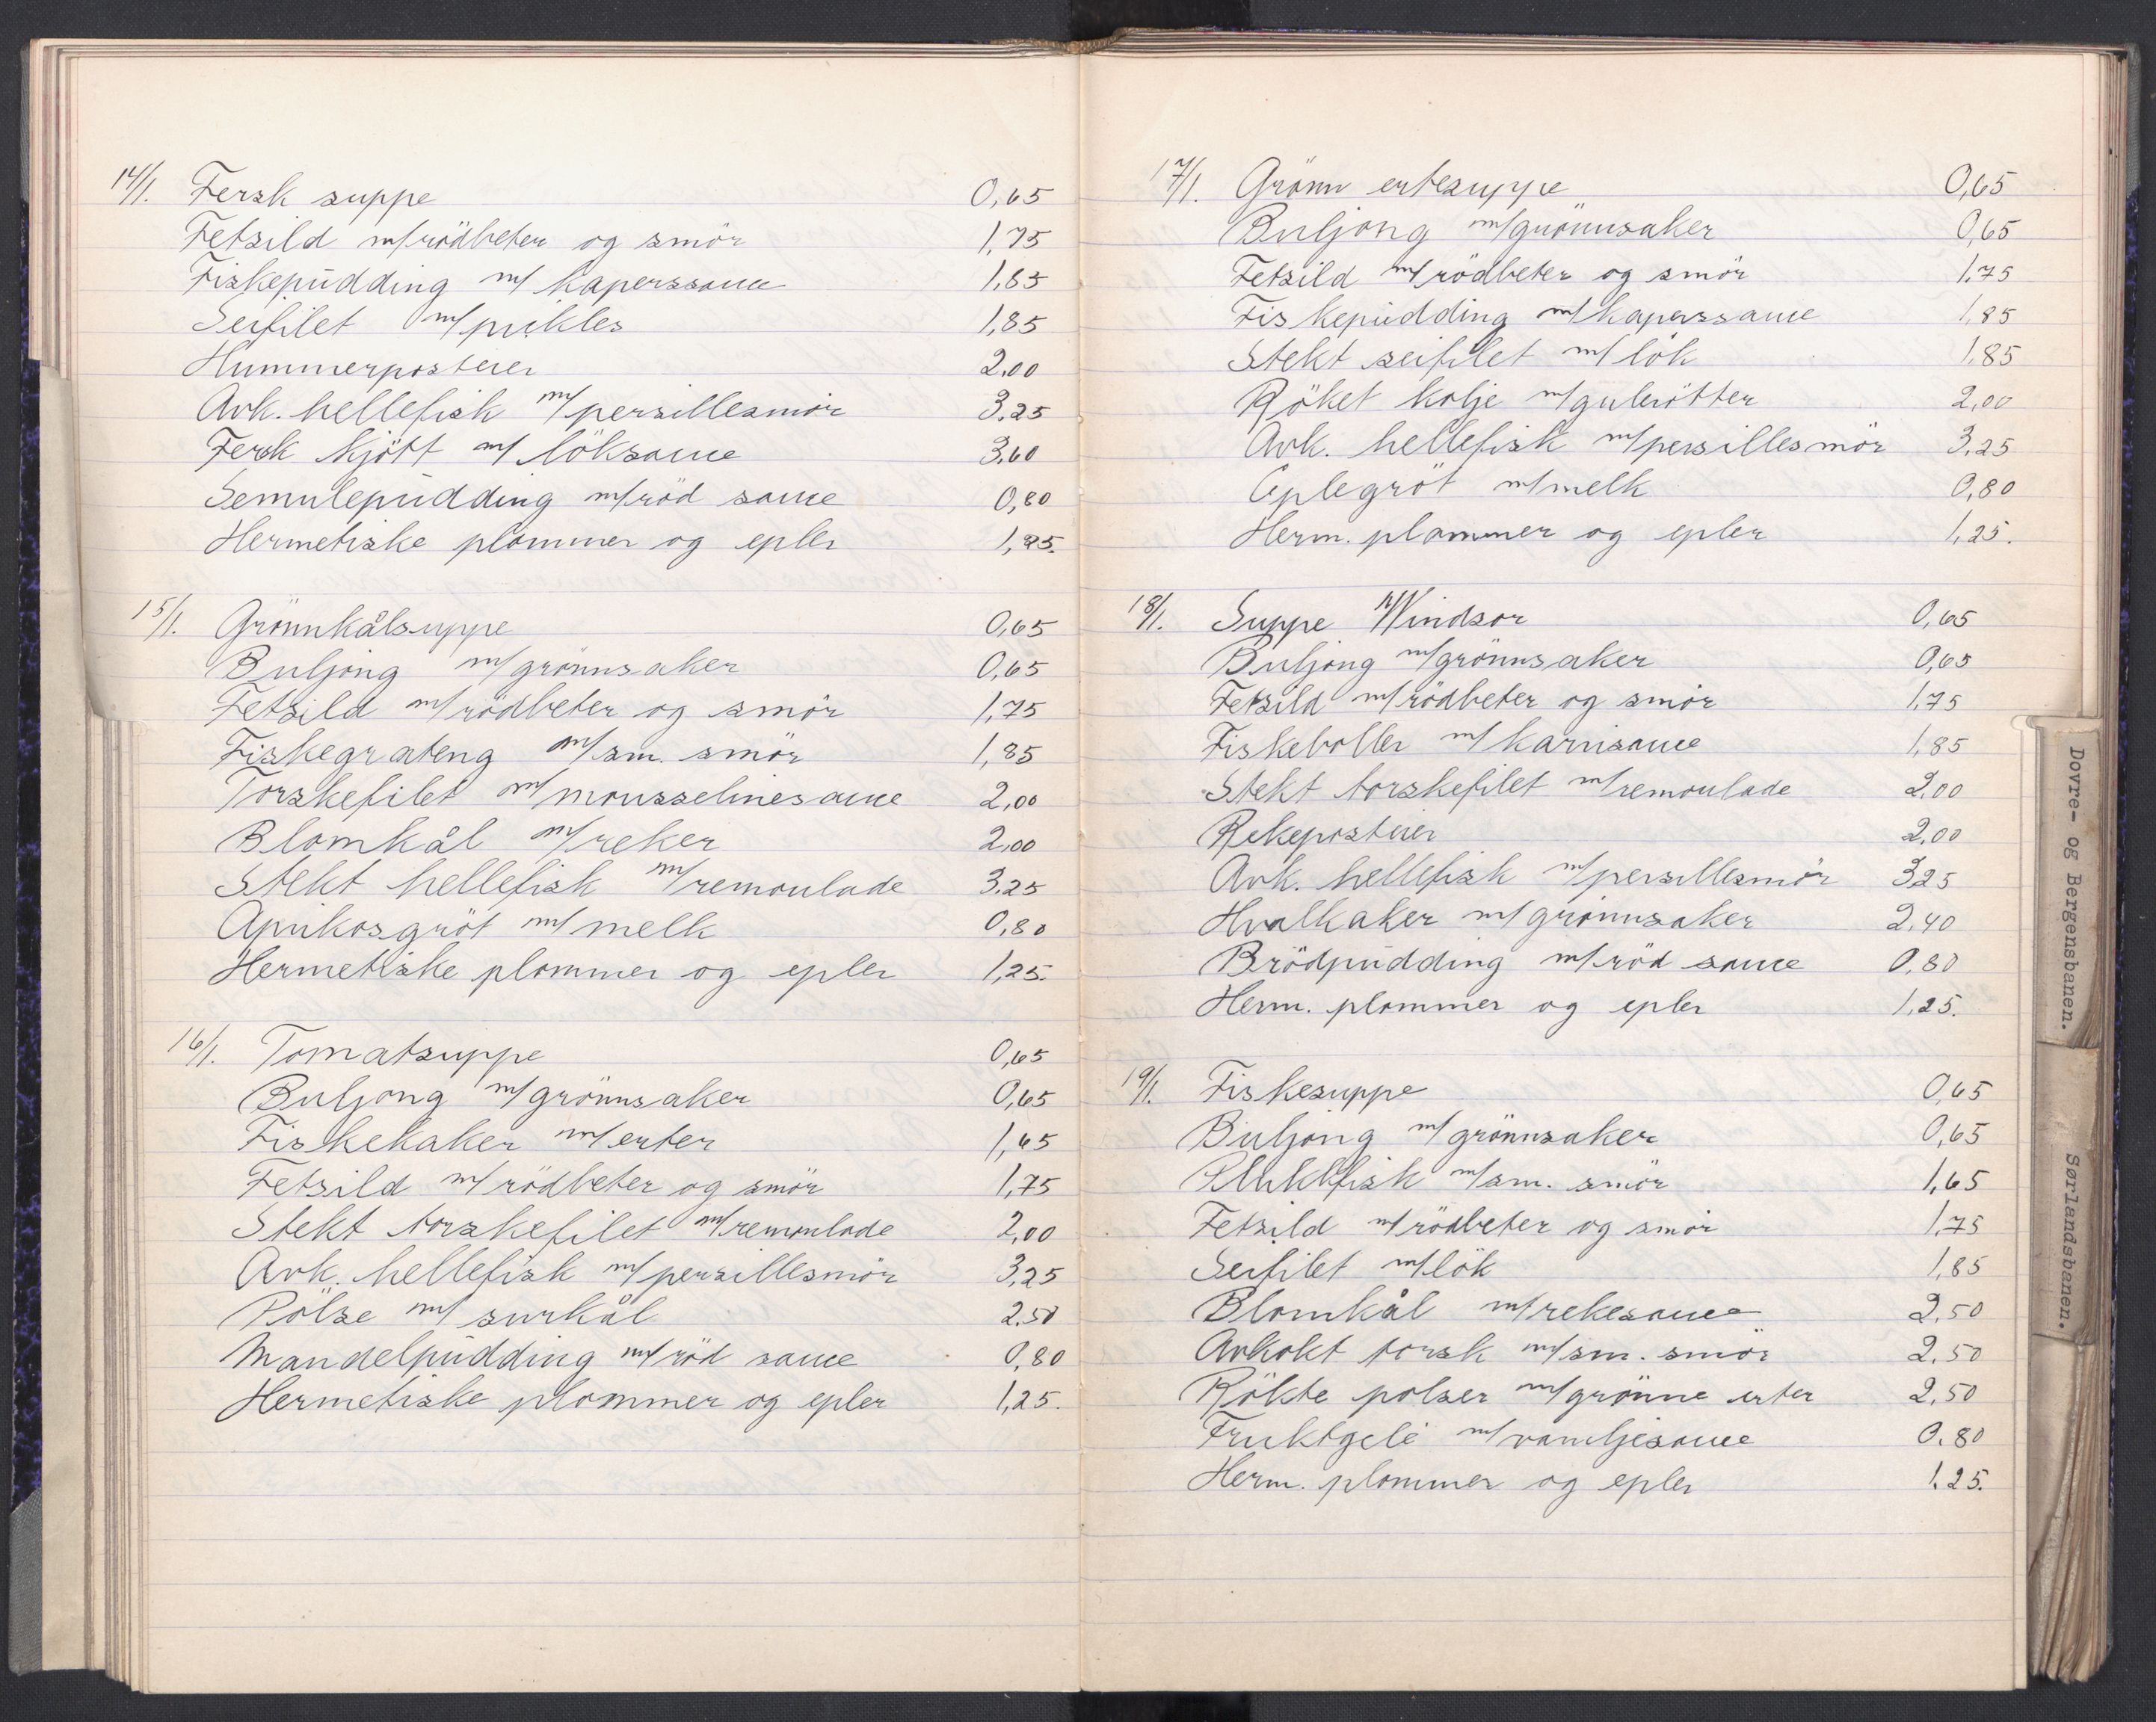 14/1. Fersk suppe 0,65
Fetsild m/rödbeter og smör 1,75
Fiskepudding m/ kaperssauce 1,85
Seifilet m/pickles 1,85
Hummerposteier 2,00
Avk. hellefisk m/persillesmör 3,25
Fersk kjött m/ löksauce 3,60
Semulepudding m/röd sauce 0,80
Hermetiske plommer og epler 1,25.
15/1. Grönnkålsuppe 0,65
Buljong m/grönnsaker 0,65
Fetsild m/rödbeter og smör 1,75
Fiskegrateng m/sm. smör 1,85
Torskefilet m/mousselinesauce 2,00
Blomkål m/reker 2,00
Stekt hellefisk m/remoulade 3,25
Aprikosgröt m/melk 0,80
Hermetiske plommer og epler 1,25.
16/1. Tomatsuppe 0,65
Buljong m/grönnsaker 0,65
Fiskekaker m/erter 1,65
Fetsild m/rödbeter og smör 1,75
Stekt torskefilet m/remoulade 2,00
Avk. hellefisk m/persillesmör 3,25
Pölse m/ surkål 2.50
Mandelpudding m/röd sauce 0,80
Hermetiske plommer og epler 1,25.
17/1. Grönn ertesuppe 0,65
Buljong m/grönnsaker 0,65
Fetsild m/rödbeter og smör 1.75
Fiskepudding m/kaperssauce 1,85
Stekt seifilet m/lök 1.85
Röket kolje m/gulerötter 2,00
Avk. hellefisk m/persillesmör 3.25
Eplegröt m/melk 0,80
Herm. plommer og epler 1,25.
18/1. Suppe Windsor 0,65
Buljong m/grönnsaker 0,65
Fetsild m/rödbeter og smör 1.75
Fiskeboller m/karrisauce 1,85
Stekt torskefilet m/remoulade 2.00
Rekeposteier 2,00
Avk. hellefisk m/persillesmör 325
Hvalkaker m/grönnsaker 2.40
Brödpudding m/röd sauce 0.80
Herm. plommer og epler 1.25.
19/1. Fiskesuppe 0,65
Buljong m/grönnsaker 0,65
Plukkfisk m/sm. smör 1,65
Fetsild m/rödbeter og smör 1.75
Seifilet m/lök 1,85
Blomkål m/rekesauce 2,50
Avkokt torsk m/sm. smör 2.50
Rökte polser m/grönne erter 2,50
Fruktgelé m/vaniljesauce 0.80
Herm. plommer og epler 1.25.
Dovre- og Bergensbanen.
Sørlandsbanen.